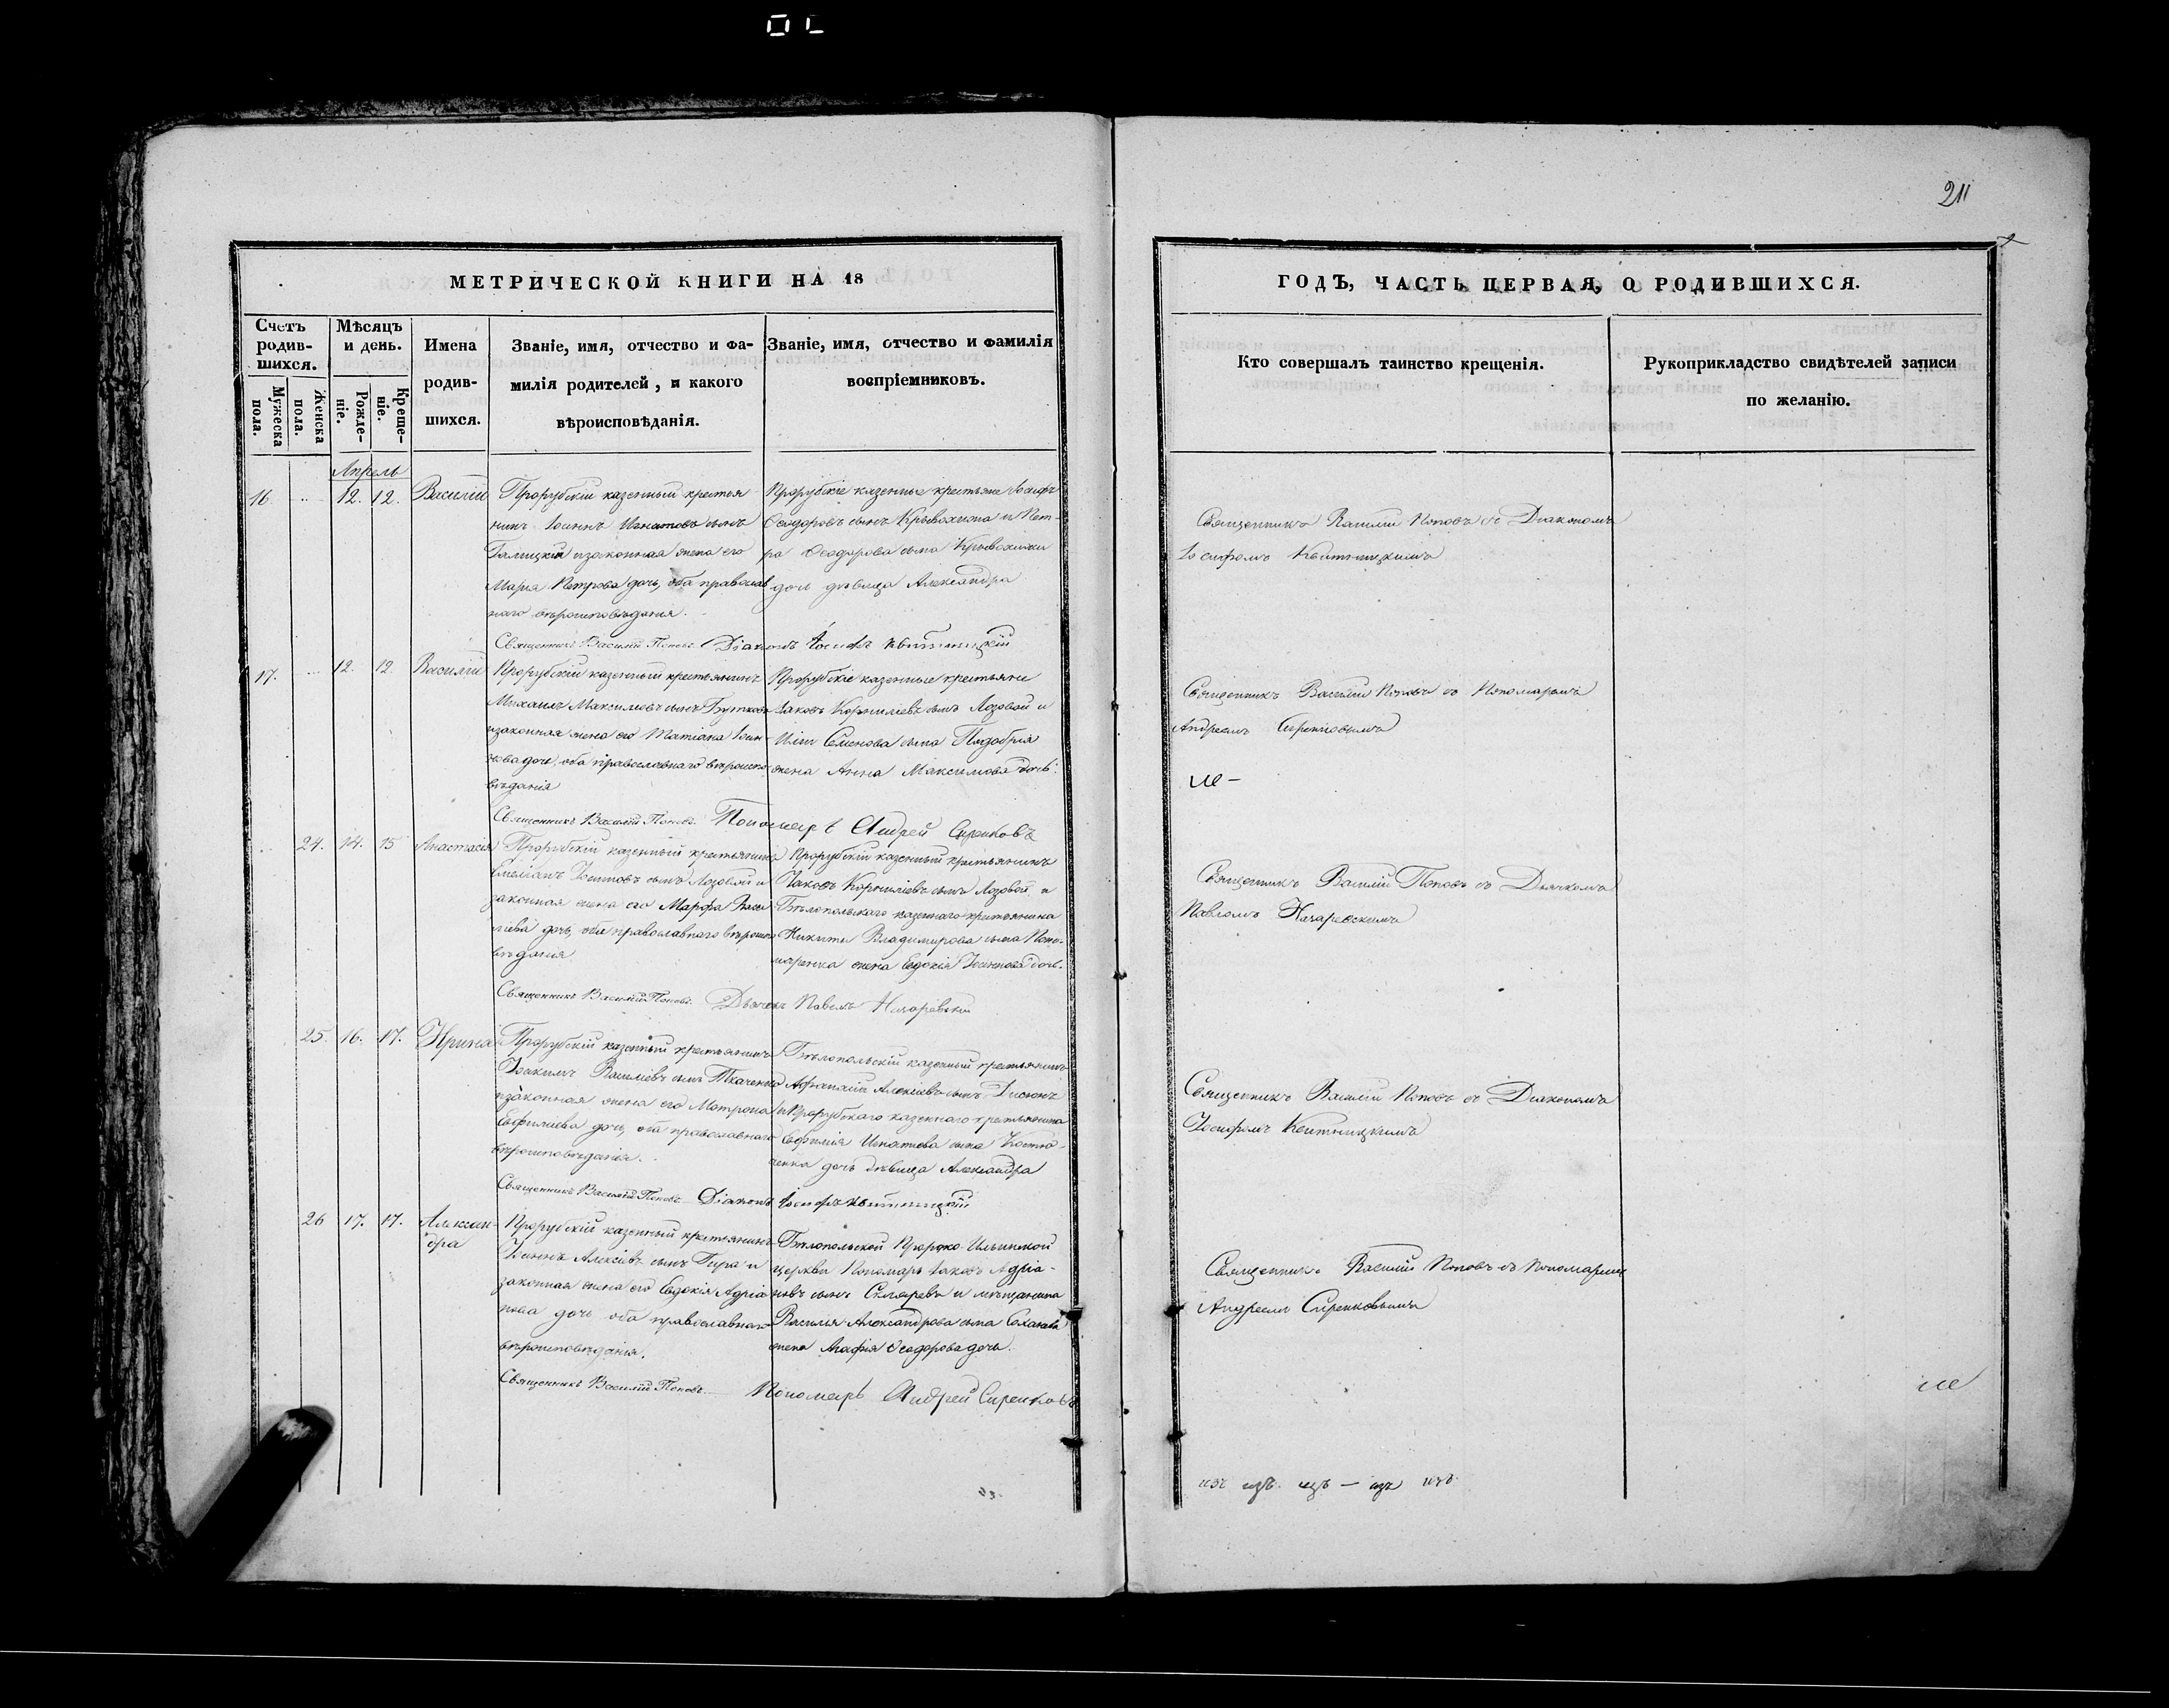 211
МЕТРИЧЕСКОЙ КНИГИ НА 18
ГОДЪ, ЧАСТЬ ПЕРВАЯ, О РОДИВШИХСЯ.
Счетъ родившихся.
Мужеска пола.
Женска пола.
Мѣсяцъ и день.
Рожденіе.
Крещеніе.
Имена родившихся.
Званіе, имя, отчество и фамилія родителей, и какого вѣроисповѣданія.
Званіе, имя, отчество и фамилія воспріемниковъ.
Кто совершалъ таинство крещенія.
Рукоприкладство свидѣтелей записи по желанію.
Апрель
16 12. 12. Василій
Прорубскій казенный крестья
нинъ Іоаннъ Игнатовъ сынъ
Галицкій изаконная жена его
Марія Петрова дочь, оба православ
наго вѣроисповѣданія.
Прорубскіе казенные крестьяне Іосифъ
Ѳеодоровъ сынъ и Пет-
ра Ѳеодорова сына
дочь дѣвица Александра
Священникъ Василій Поповъ съ Діакономъ
Іосифомъ Квитницкимъ
Священникъ Василій Поповъ. Діаконъ Іосифъ Квитницкій
17. 12. 12. Василій
Прорубскій казенный крестьянинъ
Михаилъ Максимовъ сынъ
изаконная жена его Татіана Іоан-
нова дочь, оба православнаго вѣроиспо
вѣданія
Прорубскіе казенные крестьяне
Іаковъ Корниліевъ сынъ Лозовой и
Иліи Семенова сына
жена Анна Максимова дочь.
Священникъ Василій Поповъ съ Пономаремъ
Андреемъ Сиренковымъ
Священникъ Василій Поповъ. Пономарь Андрей Сиренковъ
24. 14. 15 Анастасія
Прорубскій казенный крестьянинъ
сынъ Лозовой и
законная жена его Марфа Васи
ліева дочь, оба православнаго вѣроиспо
вѣданія
Прорубскій казенный крестьянинъ
Іаковъ Корниліевъ сынъ Лозовой и
Бѣлопольскаго казеннаго крестьянина
Никиты Владимирова сына Поно-
маренка жена Евдокія Іоаннова дочь.
Священникъ Василій Поповъ съ Дьячкомъ
Павломъ
Священникъ Василій Поповъ. Дьячекъ Павелъ
25. 16. 17. Ирина
Прорубскій казенный крестьянинъ
Іоакимъ Василіевъ сынъ Ткаченко
изаконная жена его Матрона
дочь, оба православнаго
вѣроисповѣданія.
Бѣлопольскій казенный крестьянинъ
Афанасій Алексіевъ сынъ
и Прорубскаго казеннаго крестьянина
Евфимія Игнатова сына
ченка дочь дѣвица Александра
Священникъ Василій Поповъ съ Діакономъ
Іосифомъ Квитницкимъ
Священникъ Василій Поповъ. Діаконъ Іосифъ Квитницкій
26 17. 17. Алексан-
дра
Прорубскій казенный крестьянинъ
Іоаннъ Алексіевъ сынъ Гира и
законная жена его Евдокія Адріа
нова дочь оба православнаго
вѣроисповѣданія.
Бѣлопольской Ильинской
церкви Пономарь Іаковъ Адріа-
новъ сынъ и мѣщанина
Василія Александрова сына
жена Агафія Ѳеодорова дочь.
Священникъ Василій Поповъ съ Пономаремъ
Андреемъ Сиренковымъ
Священникъ Василій Поповъ. Пономарь Андрей Сиренковъ